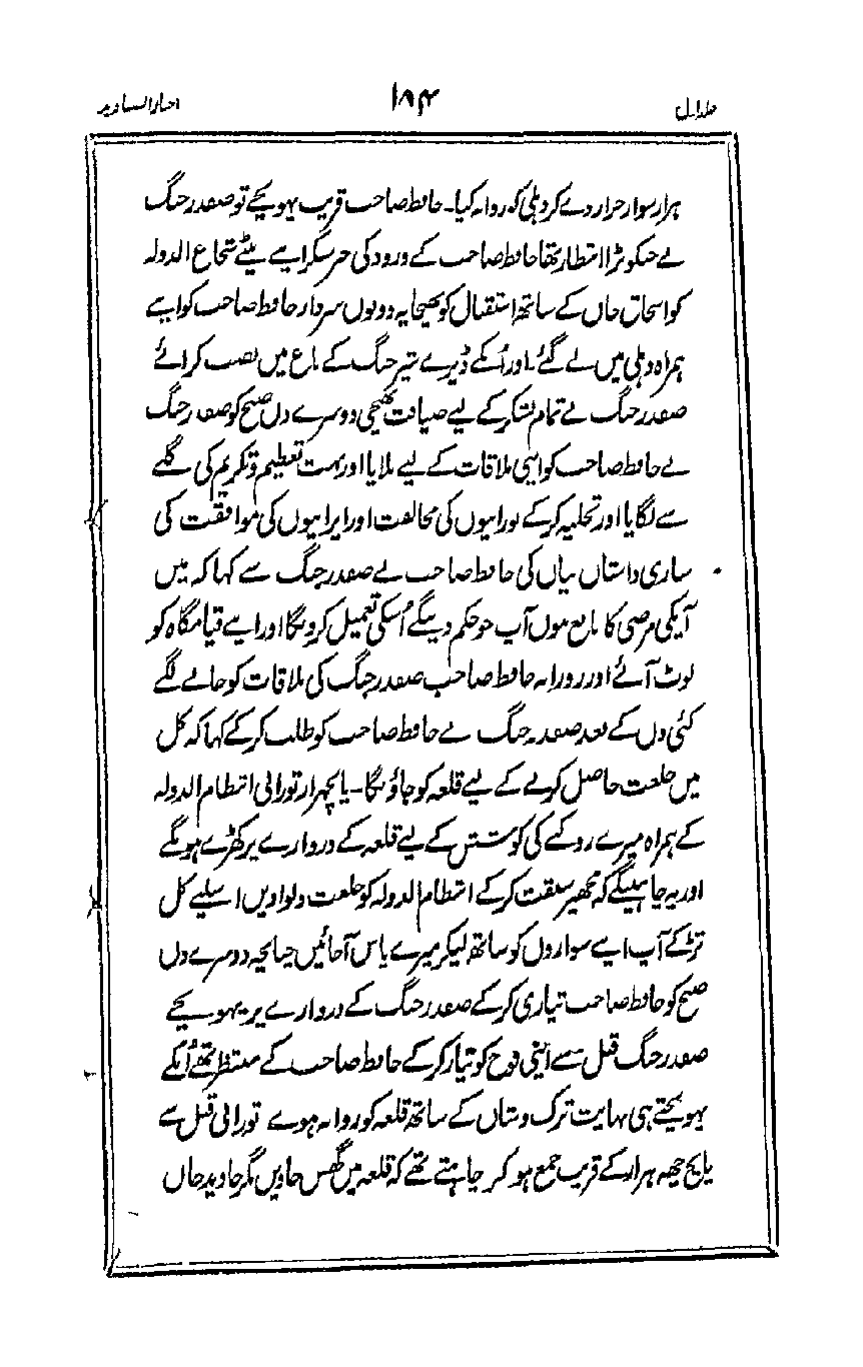 اخبارالصنادید ۱۸۴ جلداول
ہزار سوار جرار دے کر دہلی کو روانہ کیا۔ حافظ صاحب قریب پہونچے تو صفدر جنگ
نے جنکو بڑا انتظار تھا حافظ صاحب کے ورود کی خبر سنکر اپنے بیٹے شجاع الدولہ
کو اسحاق خاں کے ساتھ استقبال کو بھیجا یہ دونوں سردار حافظ صاحب کو اپنے
ہمراہ دہلی میں لے گئے۔ اور اُنکے ڈیرے تیر جنگ کے باغ میں نصب کرائے
صفدر جنگ نے تمام لشکر کے لیے ضیافت بھیجی دوسرے دن صبح کو صفدر جنگ
نے حافظ صاحب کو اپنی ملاقات کے لیے بلایا اور بہت تعظیم و تکریم کی گلے
سے لگایا اور تخلیہ کرکے تورانیوں کی مخالفت اور ایرانیوں کی موافقت کی
ساری داستان بیان کی حافظ صاحب نے صفدر جنگ سے کہا کہ میں
آپکی مرضی کا تابع ہوں آپ جو حکم دینگے اُسکی تعمیل کرونگا اور اپنے قیامگاہ کو
لوٹ آئے اور روزانہ حافظ صاحب صفدر جنگ کی ملاقات کو جانے لگے
کئی دن کے بعد صفدر جنگ نے حافظ صاحب کو طلب کرکے کہا کہ کل
میں خلعت حاصل کرنے کے لیے قلعہ کو جاؤنگا۔ پانچہزار تورانی انتظام الدولہ
کے ہمراہ میرے روکنے کی کوشش کے لیے قلعہ کے دروازے پر کھڑے ہونگے
اور یہ چاہینگے کہ مجھپر سبقت کرکے انتظام الدولہ کو خلعت دلوادیں اسلیے کل
تڑکے آپ اپنے سواروں کو ساتھ لیکر میرے پاس آجائیں چنانچہ دوسرے دن
صبح کو حافظ صاحب تیاری کرکے صفدر جنگ کے دروازے پر پہونچے
صفدر جنگ قبل سے اپنی فوج کو تیار کرکے حافظ صاحب کے منتظر تھے اُنکے
پہونچتے ہی نہایت تزک و شان کے ساتھ قلعہ کو روانہ ہوے تورانی قبل سے
پانچ چھہ ہزار کے قریب جمع ہو کر چاہتے تھے کہ قلعہ میں گھس جاویں مگر جاوید خاں